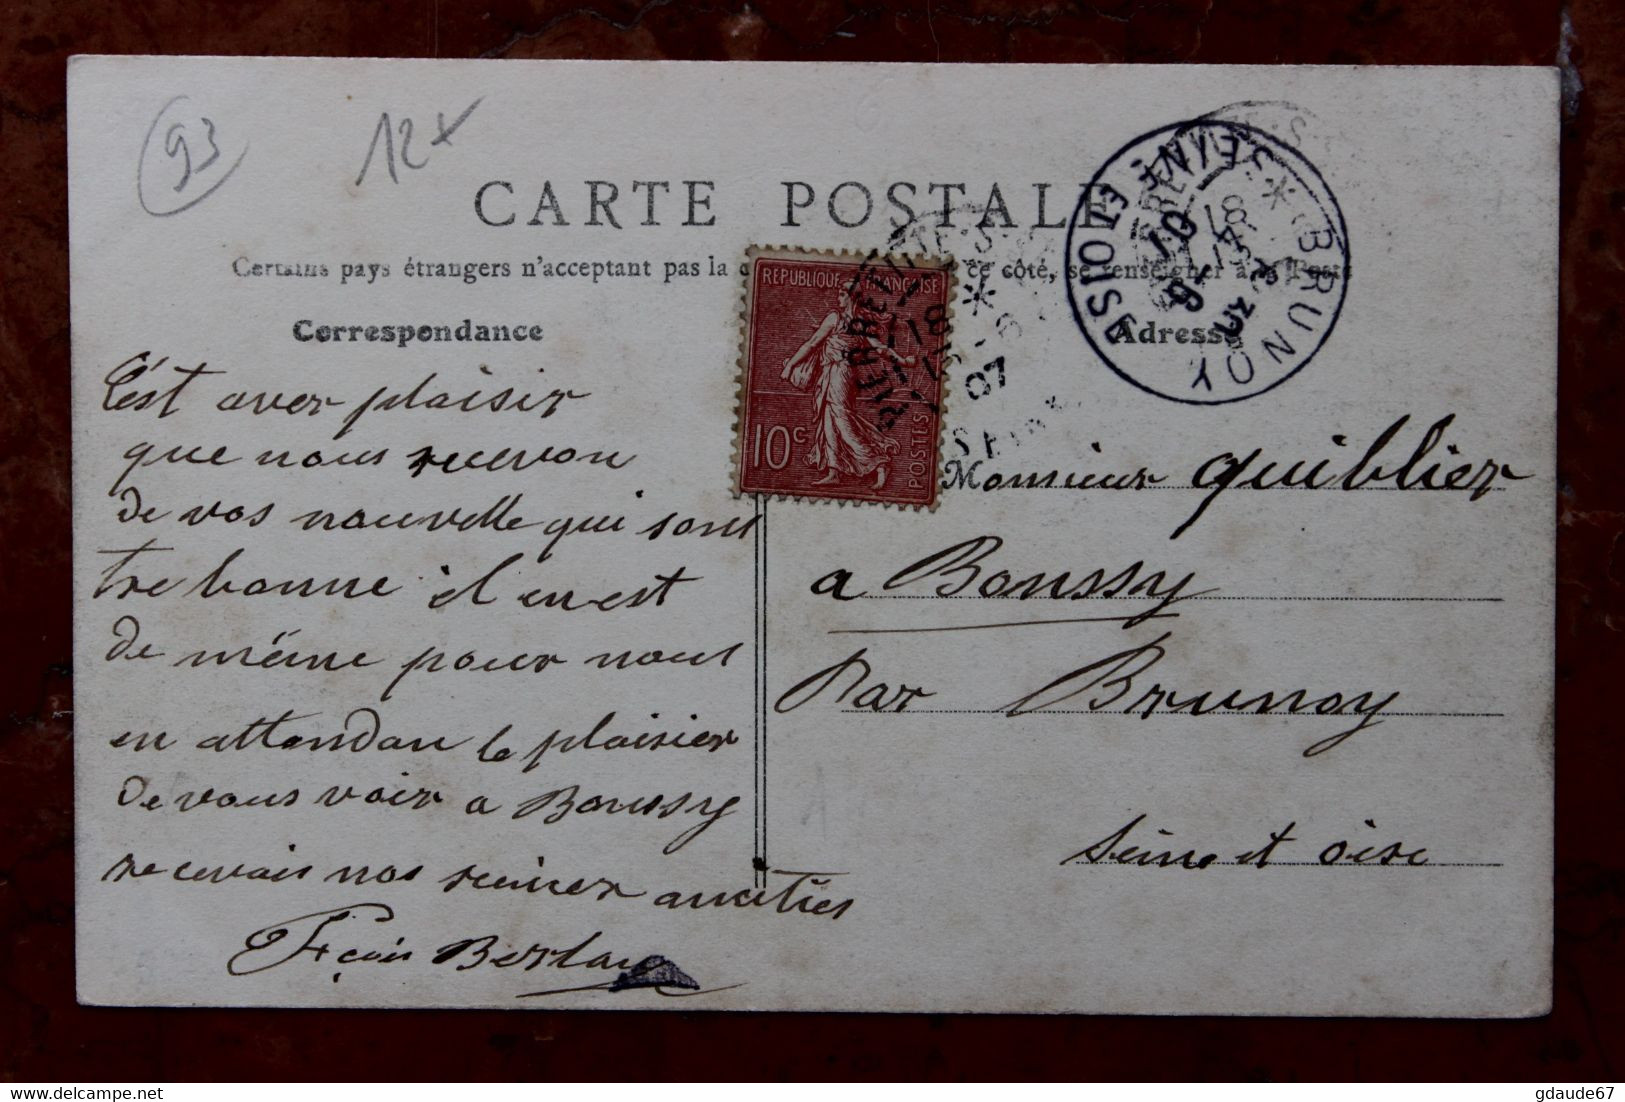 93
12+
CARTE POSTALE
Certains pays étrangers n'acceptant pas la ce côté, se renseigner à la Poste
Correspondance
Adresse
C'est aver plaisir
que nous recevon
de vos nouvelle qui sont
tre bonne il en est
de même pour nous
en attendan le plaisier
de vous voir a Boussy
recevais nos seincer amitiés
Fçois Berlau
REPUBLIQUE FRANÇAISE
10c
POSTES
PIERREFITTE-S-
18
6
07
SEINE
BRUNOY
SEINE ET OISE
18
07
Monsieur quiblier
a Boussy
Par Brunoy
Seine et oise
gdaude67